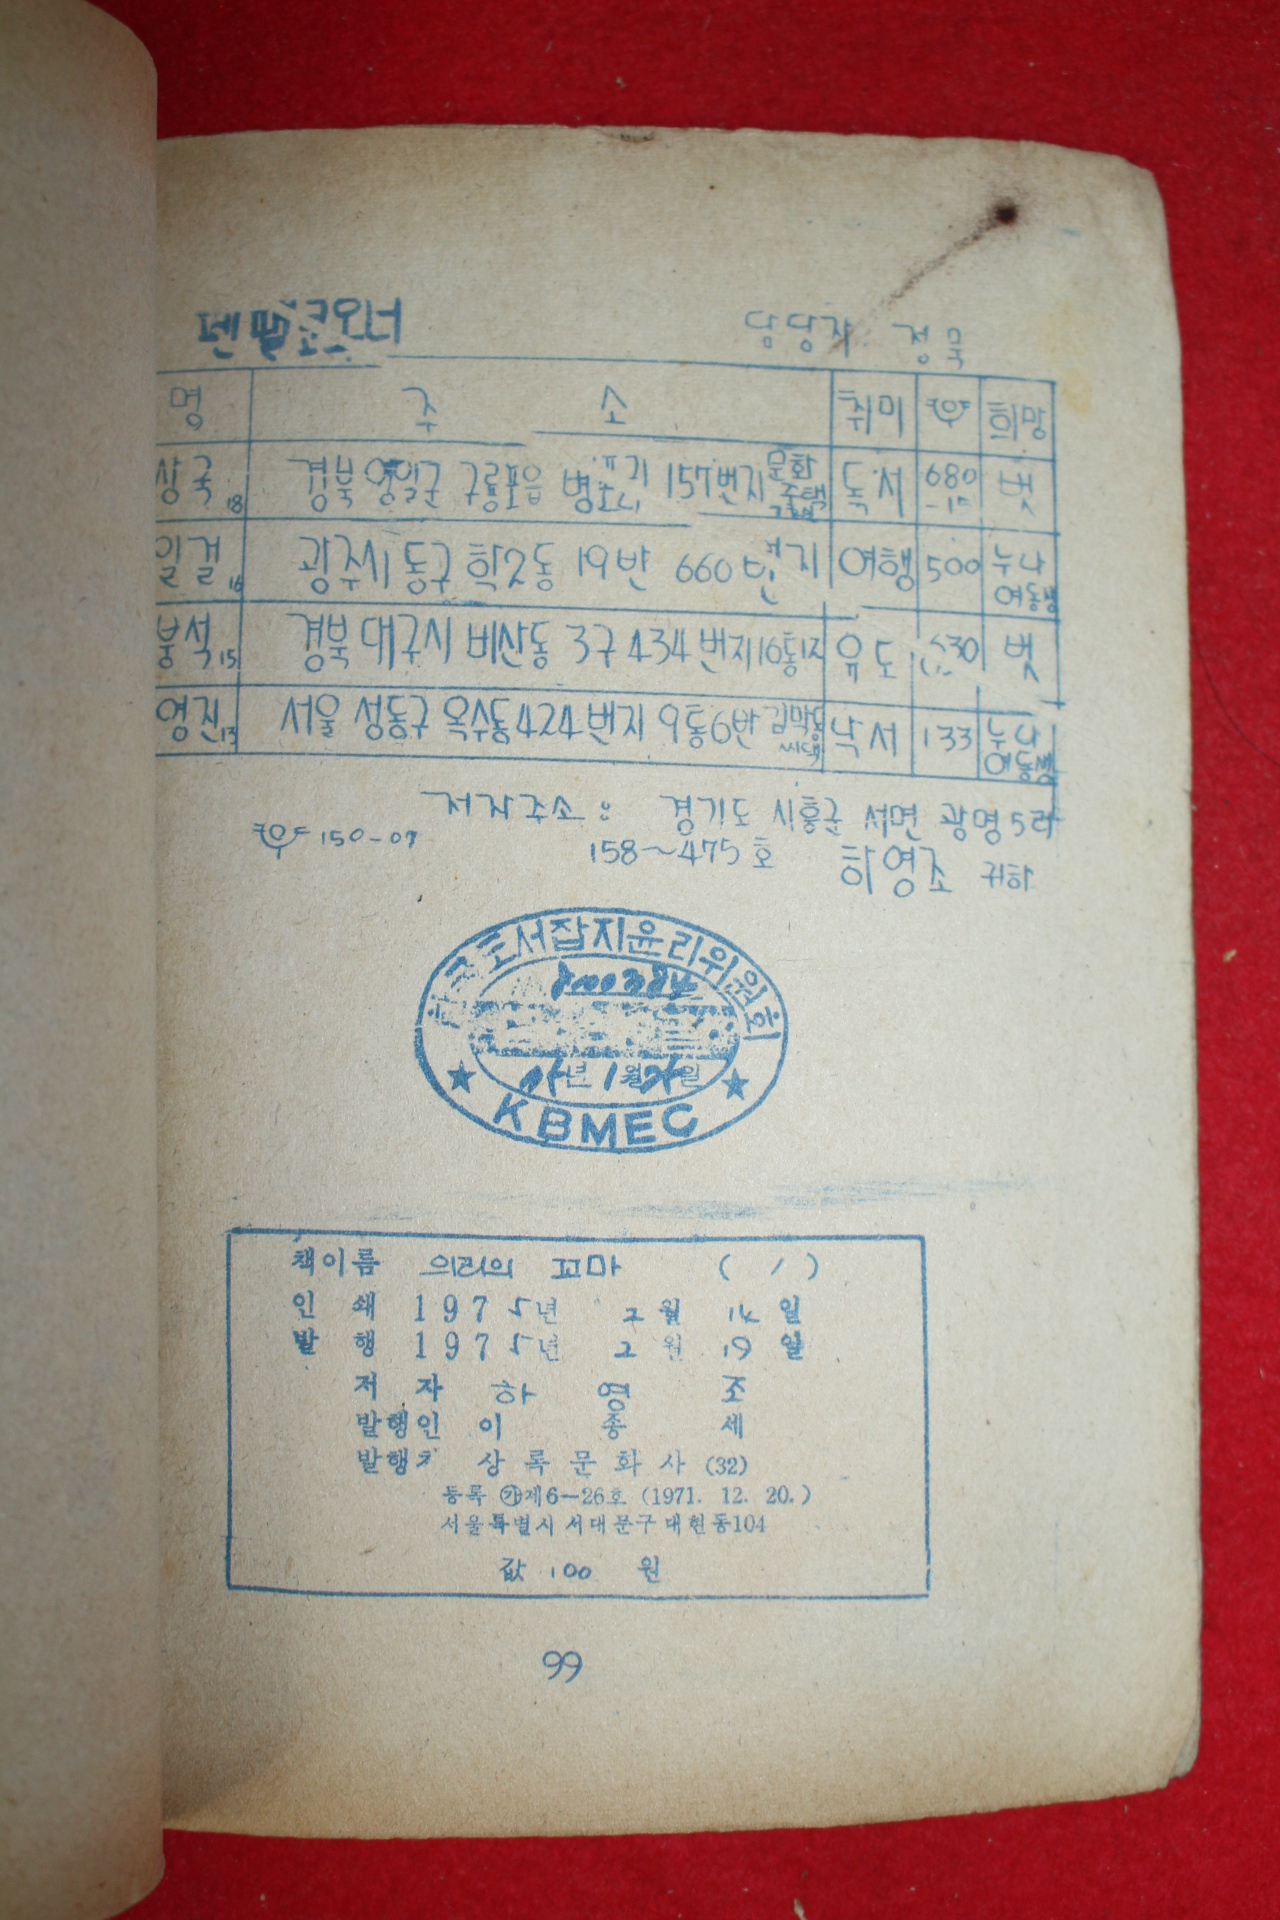 펜팔코오너 담당자 정묵
명 주 소 취미 우 희망
상국 18 경북 영일군 구룡포읍 병포리 157번지 문화주택 독서 680 벗
일걸 16 광주시 동구 학2동 19반 660번지 여행 500 누나 여동생
붕석 15 경북 대구시 비산동 3구 434번지 16통 유도 630 벗
영진 13 서울 성동구 옥수동 424번지 9통6반 김막동씨댁 낙서 133 누나 여동생
저자주소 : 경기도 시흥군 서면 광명5리
우 150-07 158~475호 하영조 귀하
한국도서잡지윤리위원회
년 1월 일
★ ★
KBMEC
책이름 의리의 꼬마 (1)
인쇄 1975년 2월 14일
발행 1975년 2월 19일
저자 하영조
발행인 이종세
발행처 상록문화사 (32)
등록 ㉮제6-26호 (1971. 12. 20.)
서울특별시 서대문구 대현동104
값 100 원
99